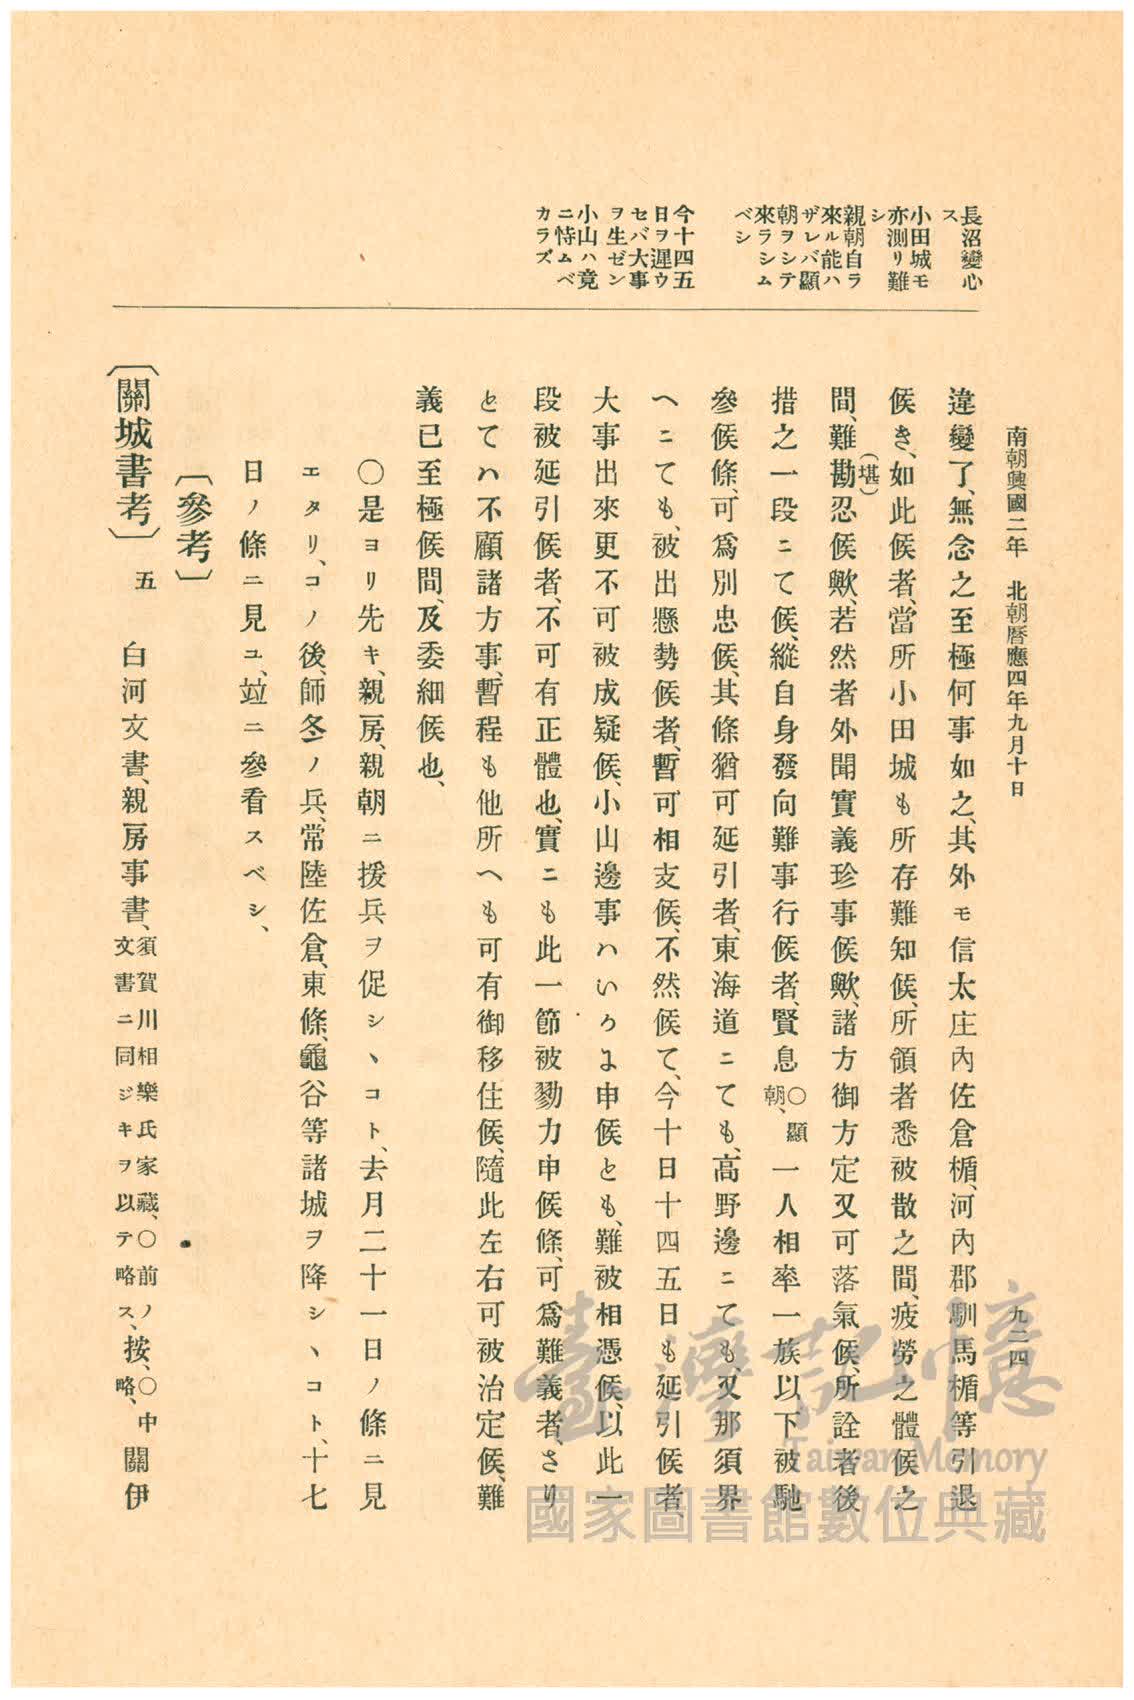 南朝興國二年　北朝曆應四年九月十日
九二四
長沼變心
ス
小田城モ
亦測リ難
シ
親朝自ラ
來ル能ハ
ザレバ顯
朝ヲシテ
來ラシム
ベシ
今十四五
日ヲ遲ウ
セバ大事
ヲ生ゼン
小山ハ竟
ニ恃ムベ
カラズ
違變了、無念之至極何事如之、其外モ信太庄內佐倉楯、河內郡馴馬楯等引退
候き、如此候者、當所小田城も所存難知候、所領者悉被散之間、疲勞之體候之
間、難勘(堪)忍候歟、若然者外聞實義珍事候歟、諸方御方定又可落氣候、所詮者後
措之一段ニて候、縱自身發向難事行候者、賢息○顯朝、一人相率一族以下被馳
參候條、可爲別忠候、其條猶可延引者、東海道ニても、高野邊ニても、又那須界
へニても、被出懸勢候者、暫可相支候、不然候て、今十日十四五日も延引候者、
大事出來更不可被成疑候、小山邊事ハいかよ申候とも、難被相憑候、以此一
段被延引候者、不可有正體也、實ニも此一節被勠力申候條、可爲難義者、さり
とてハ不顧諸方事、暫程も他所へも可有御移住候、隨此左右可被治定候、難
義已至極候間、及委細候也、
○是ヨリ先キ、親房、親朝ニ援兵ヲ促シヽコト、去月二十一日ノ條ニ見
エタリ、コノ後、師冬ノ兵、常陸佐倉、東條、龜谷等諸城ヲ降シヽコト、十七
日ノ條ニ見ユ、竝ニ參看スベシ、
〔參考〕
〔關城書考〕五　白河文書、親房事書、須賀川相樂氏家藏、○前ノ文書ニ同ジキヲ以テ略ス、按、○中略、關伊
臺灣記憶
Taiwan Memory
國家圖書館數位典藏